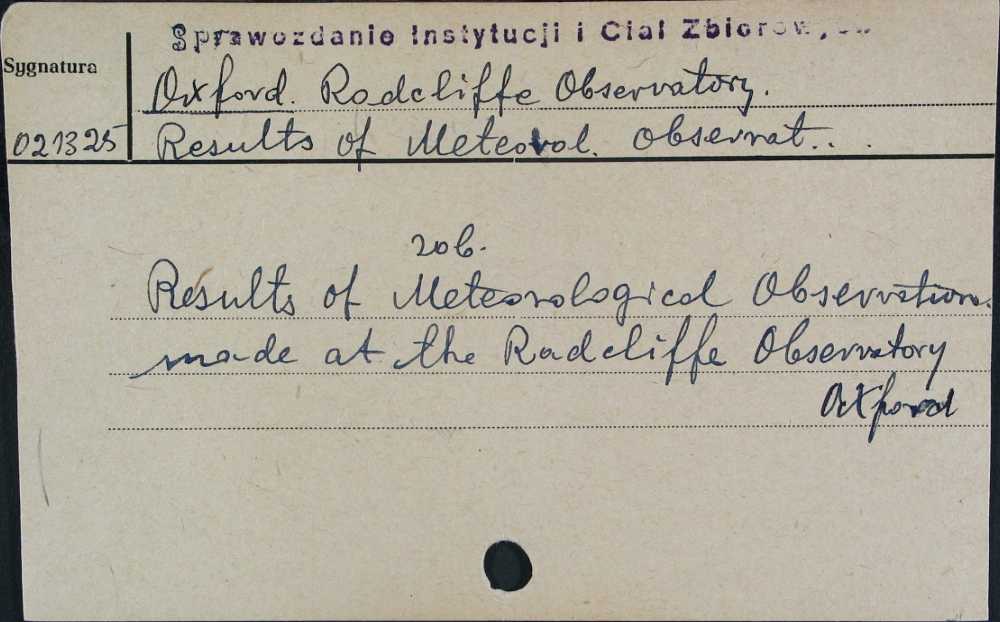 Sprawozdanie Instytucji i Ciał Zbiorowych
Sygnatura
Oxford. Radcliffe Observatory.
021325
Results of Meteorol. Observat...
zob.
Results of Meteorological Observations
made at the Radcliffe Observatory
Oxford